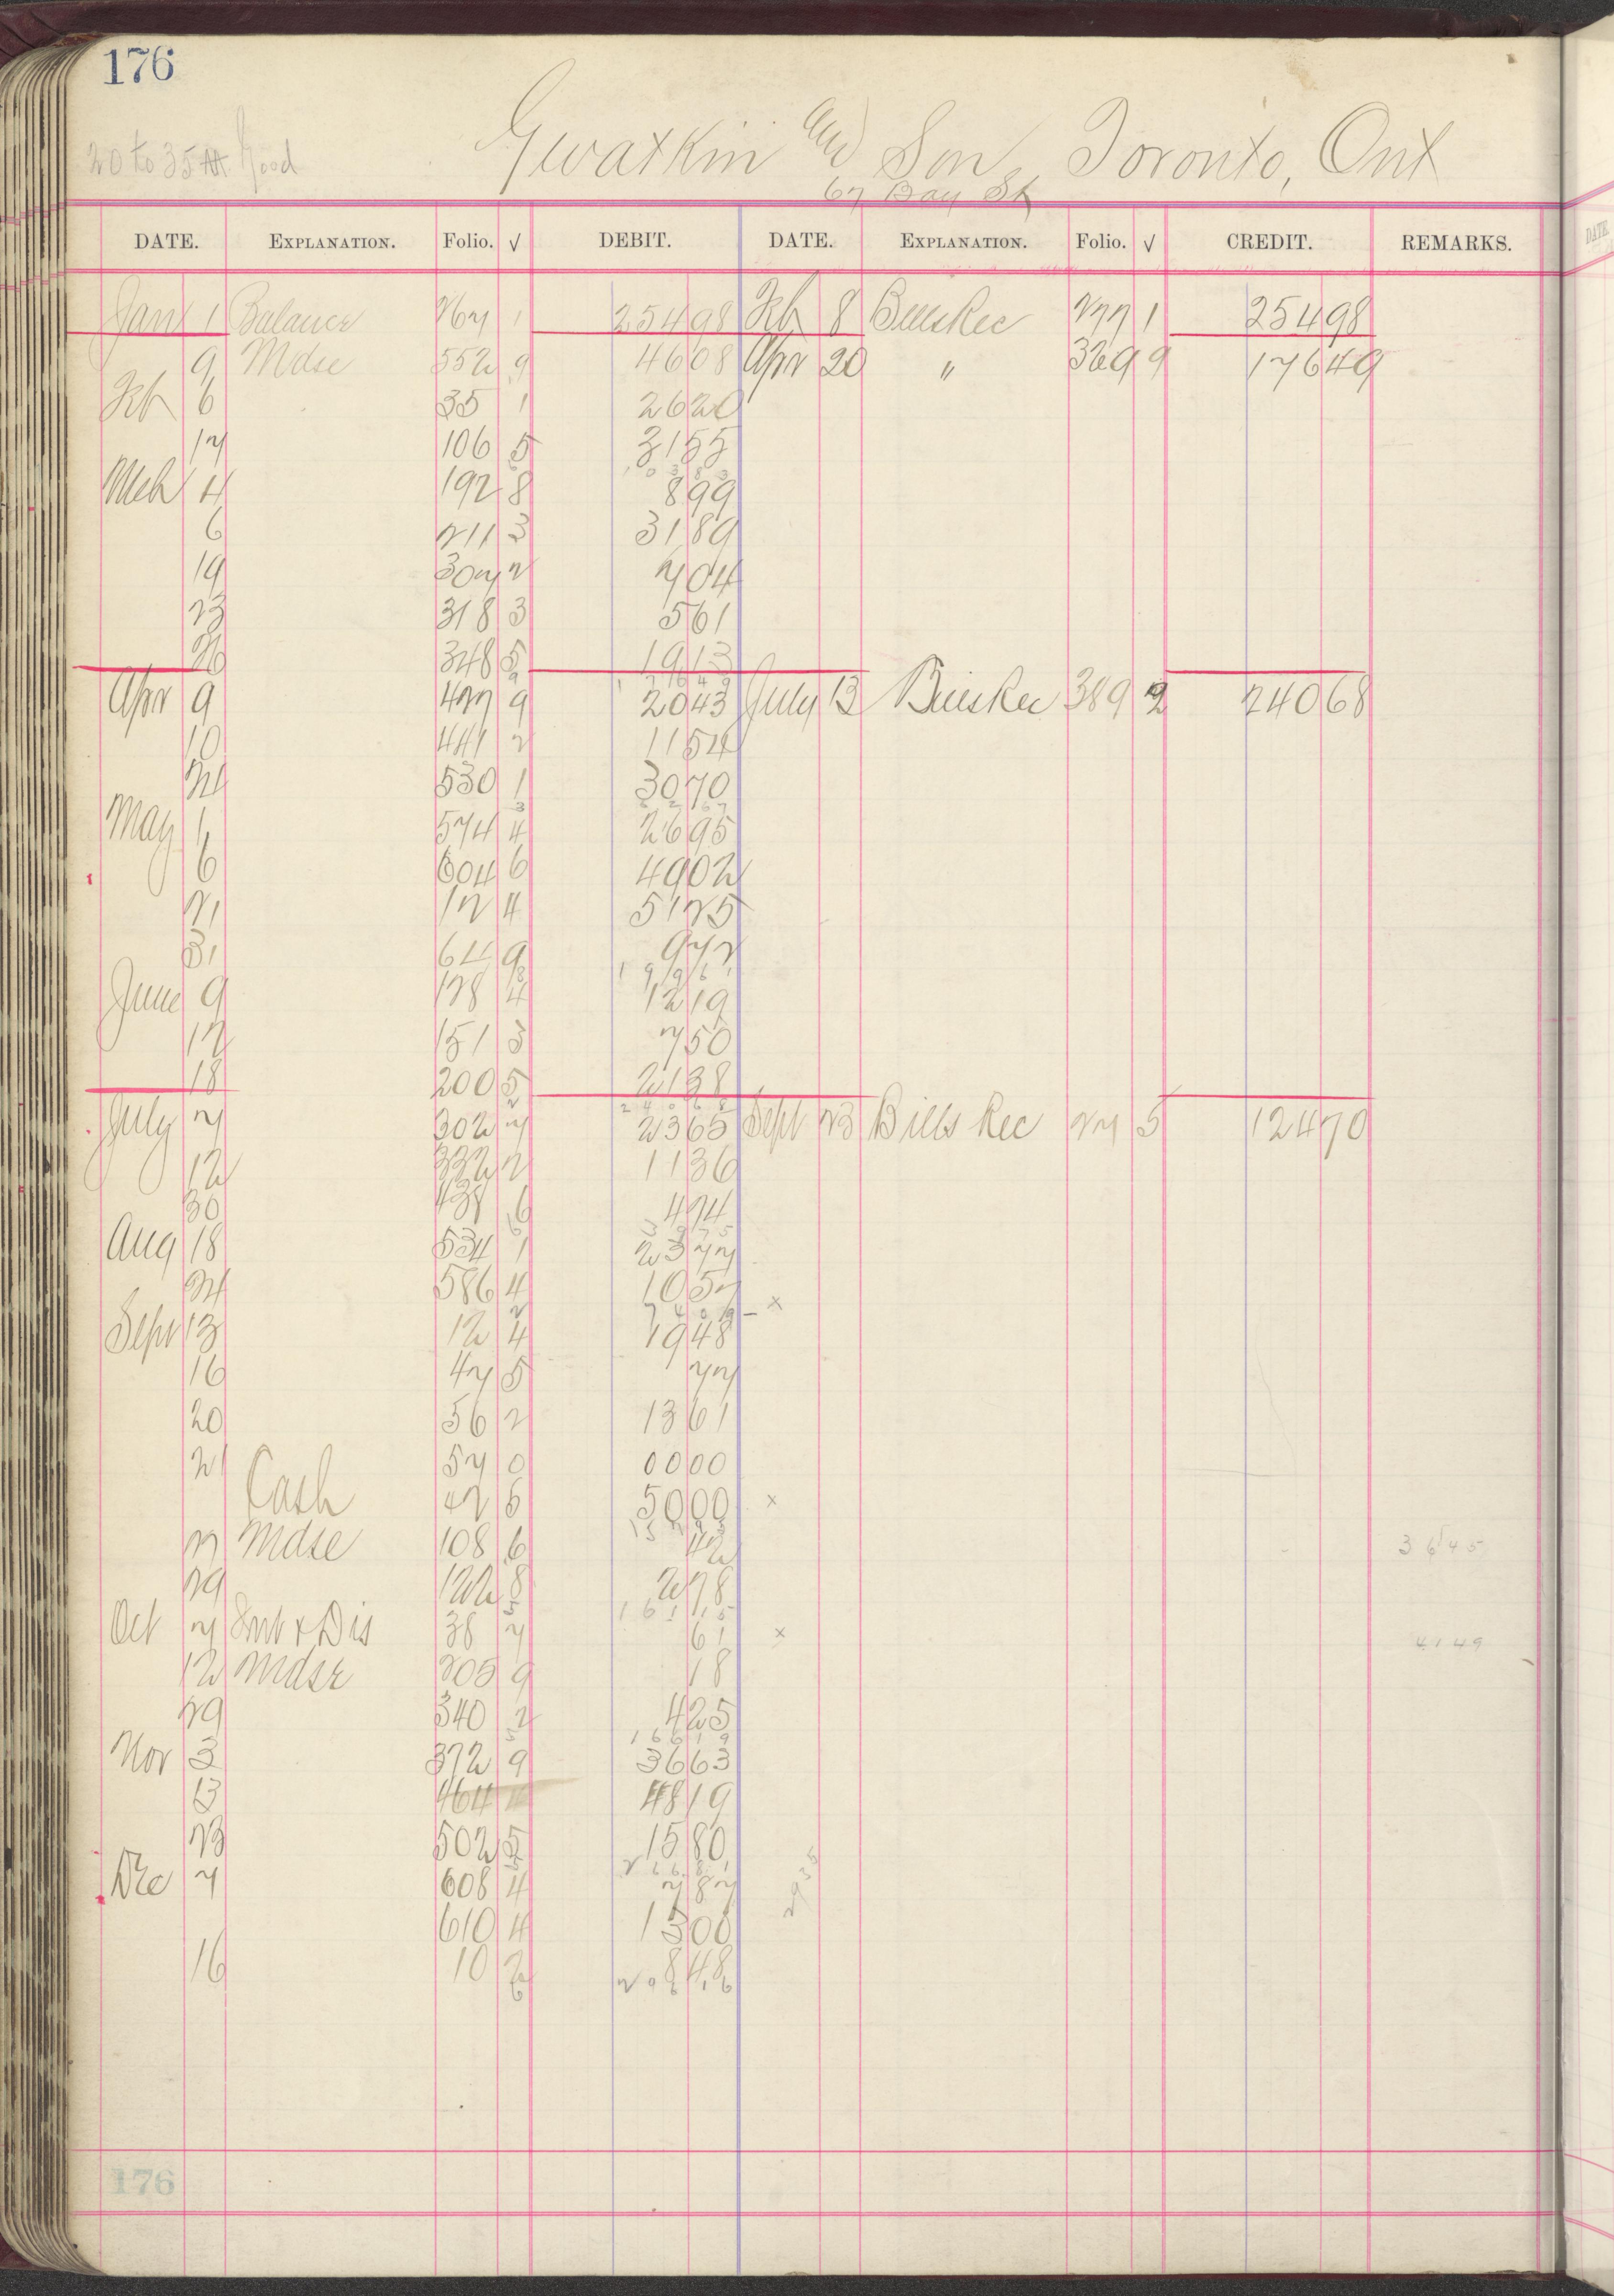 176
20 to 35 M. Good
Gwatkin and Son, Toronto, Ont
67 Bay St
DATE. EXPLANATION. Folio. √ DEBIT. DATE. EXPLANATION. Folio. √ CREDIT. REMARKS.
Jan 1 Balance 267 1 254 98 Feb 8 Bills Rec 277 1 254 98
9 Mdse 552 9 46 08 Apr 20 " 329 9 176 49
Feb 6 35 1 26 20
17 106 5 31 55
1 0 3 8 3
Mch 4 192 8 8 99
6 211 3 31 89
19 307 2 7 04
23 318 3 5 61
26 348 5 19 13
1 7 6 4 9
Apr 9 427 9 20 43 July 13 Bills Rec 389 2 240 68
10 441 2 11 54
24 530 1 30 70
6 2 6 7
May 1 574 4 26 95
6 604 6 49 02
21 12 4 51 25
31 64 9 9 72
1 9 9 6 1
June 9 128 4 12 19
12 151 3 7 50
18 200 5 21 38
2 4 0 6 8
July 7 302 7 23 65 Sept 23 Bills Rec 27 5 124 70
12 332 2 11 36
30 438 6 4 74
3 9 7 5
Aug 18 534 1 23 77
24 586 4 10 57
7 4 0 9 – x
Sept 13 12 4 19 48
16 47 5 77
20 56 2 13 61
21 57 0 00 00
Cash 42 6 50 00 x
27 Mdse 108 6 42
29 122 8 2 78
1 6 1 1 5
Oct 7 Int & Dis 38 7 61 x
12 Mdse 205 9 18
29 340 2 4 25
1 6 6 1 9
Nov 3 372 9 36 63
13 464 48 19
23 502 5 15 80
2 6 6 8 1
Dec 7 608 4 7 87
610 4 15 00
16 10 2 8 48
3 6 4 5
41 49
2935
176